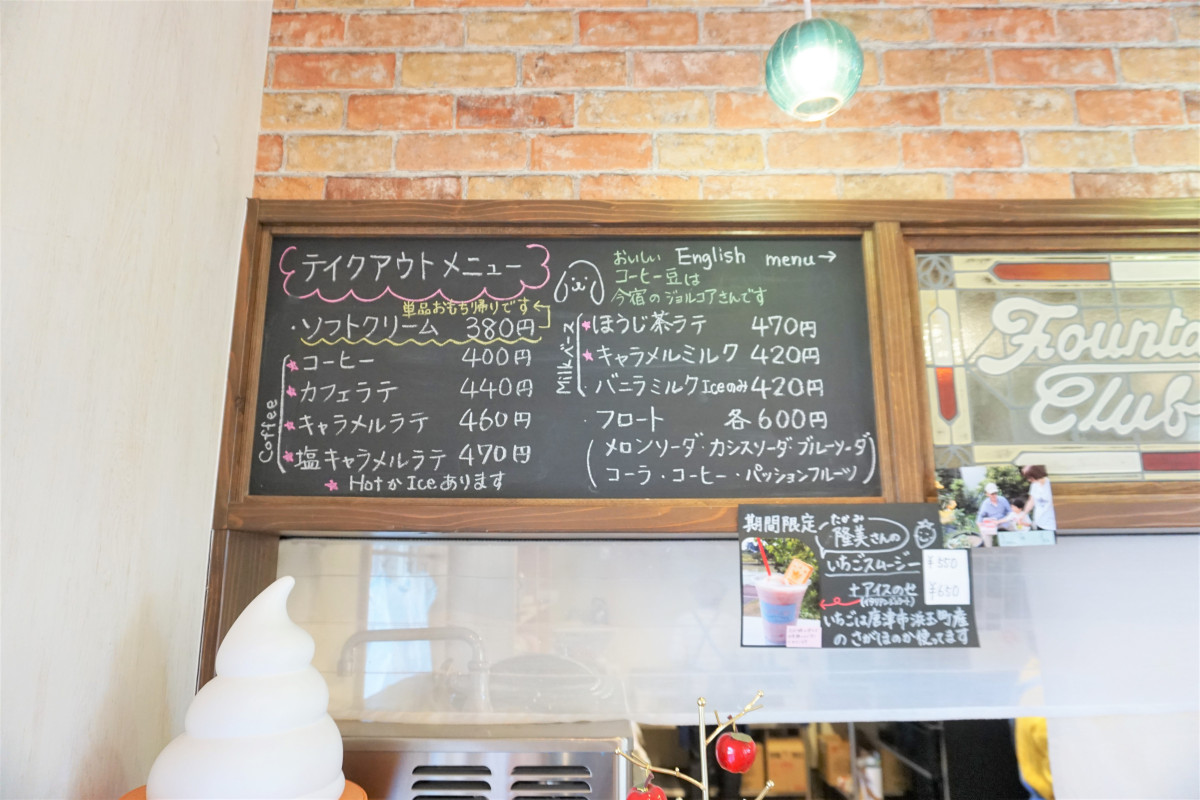 テイクアウトメニュー
単品おもち帰りです
・ソフトクリーム 380円
Coffee
★コーヒー 400円
★カフェラテ 440円
★キャラメルラテ 460円
★塩キャラメルラテ 470円
★ HotかIceあります
おいしい
コーヒー豆は
今宿のジョルコアさんです
English menu→
Milkベース
★ほうじ茶ラテ 470円
★キャラメルミルク 420円
・バニラミルクIceのみ420円
・フロート 各600円
(メロンソーダ・カシスソーダ・ブルーソーダ
コーラ・コーヒー・パッションフルーツ)
Founta
Club
期間限定
たかみ
隆美さんの
いちごスムージー ¥550
+アイスのせ ¥650
いちごは唐津市浜玉町産
の さがほのか使ってます